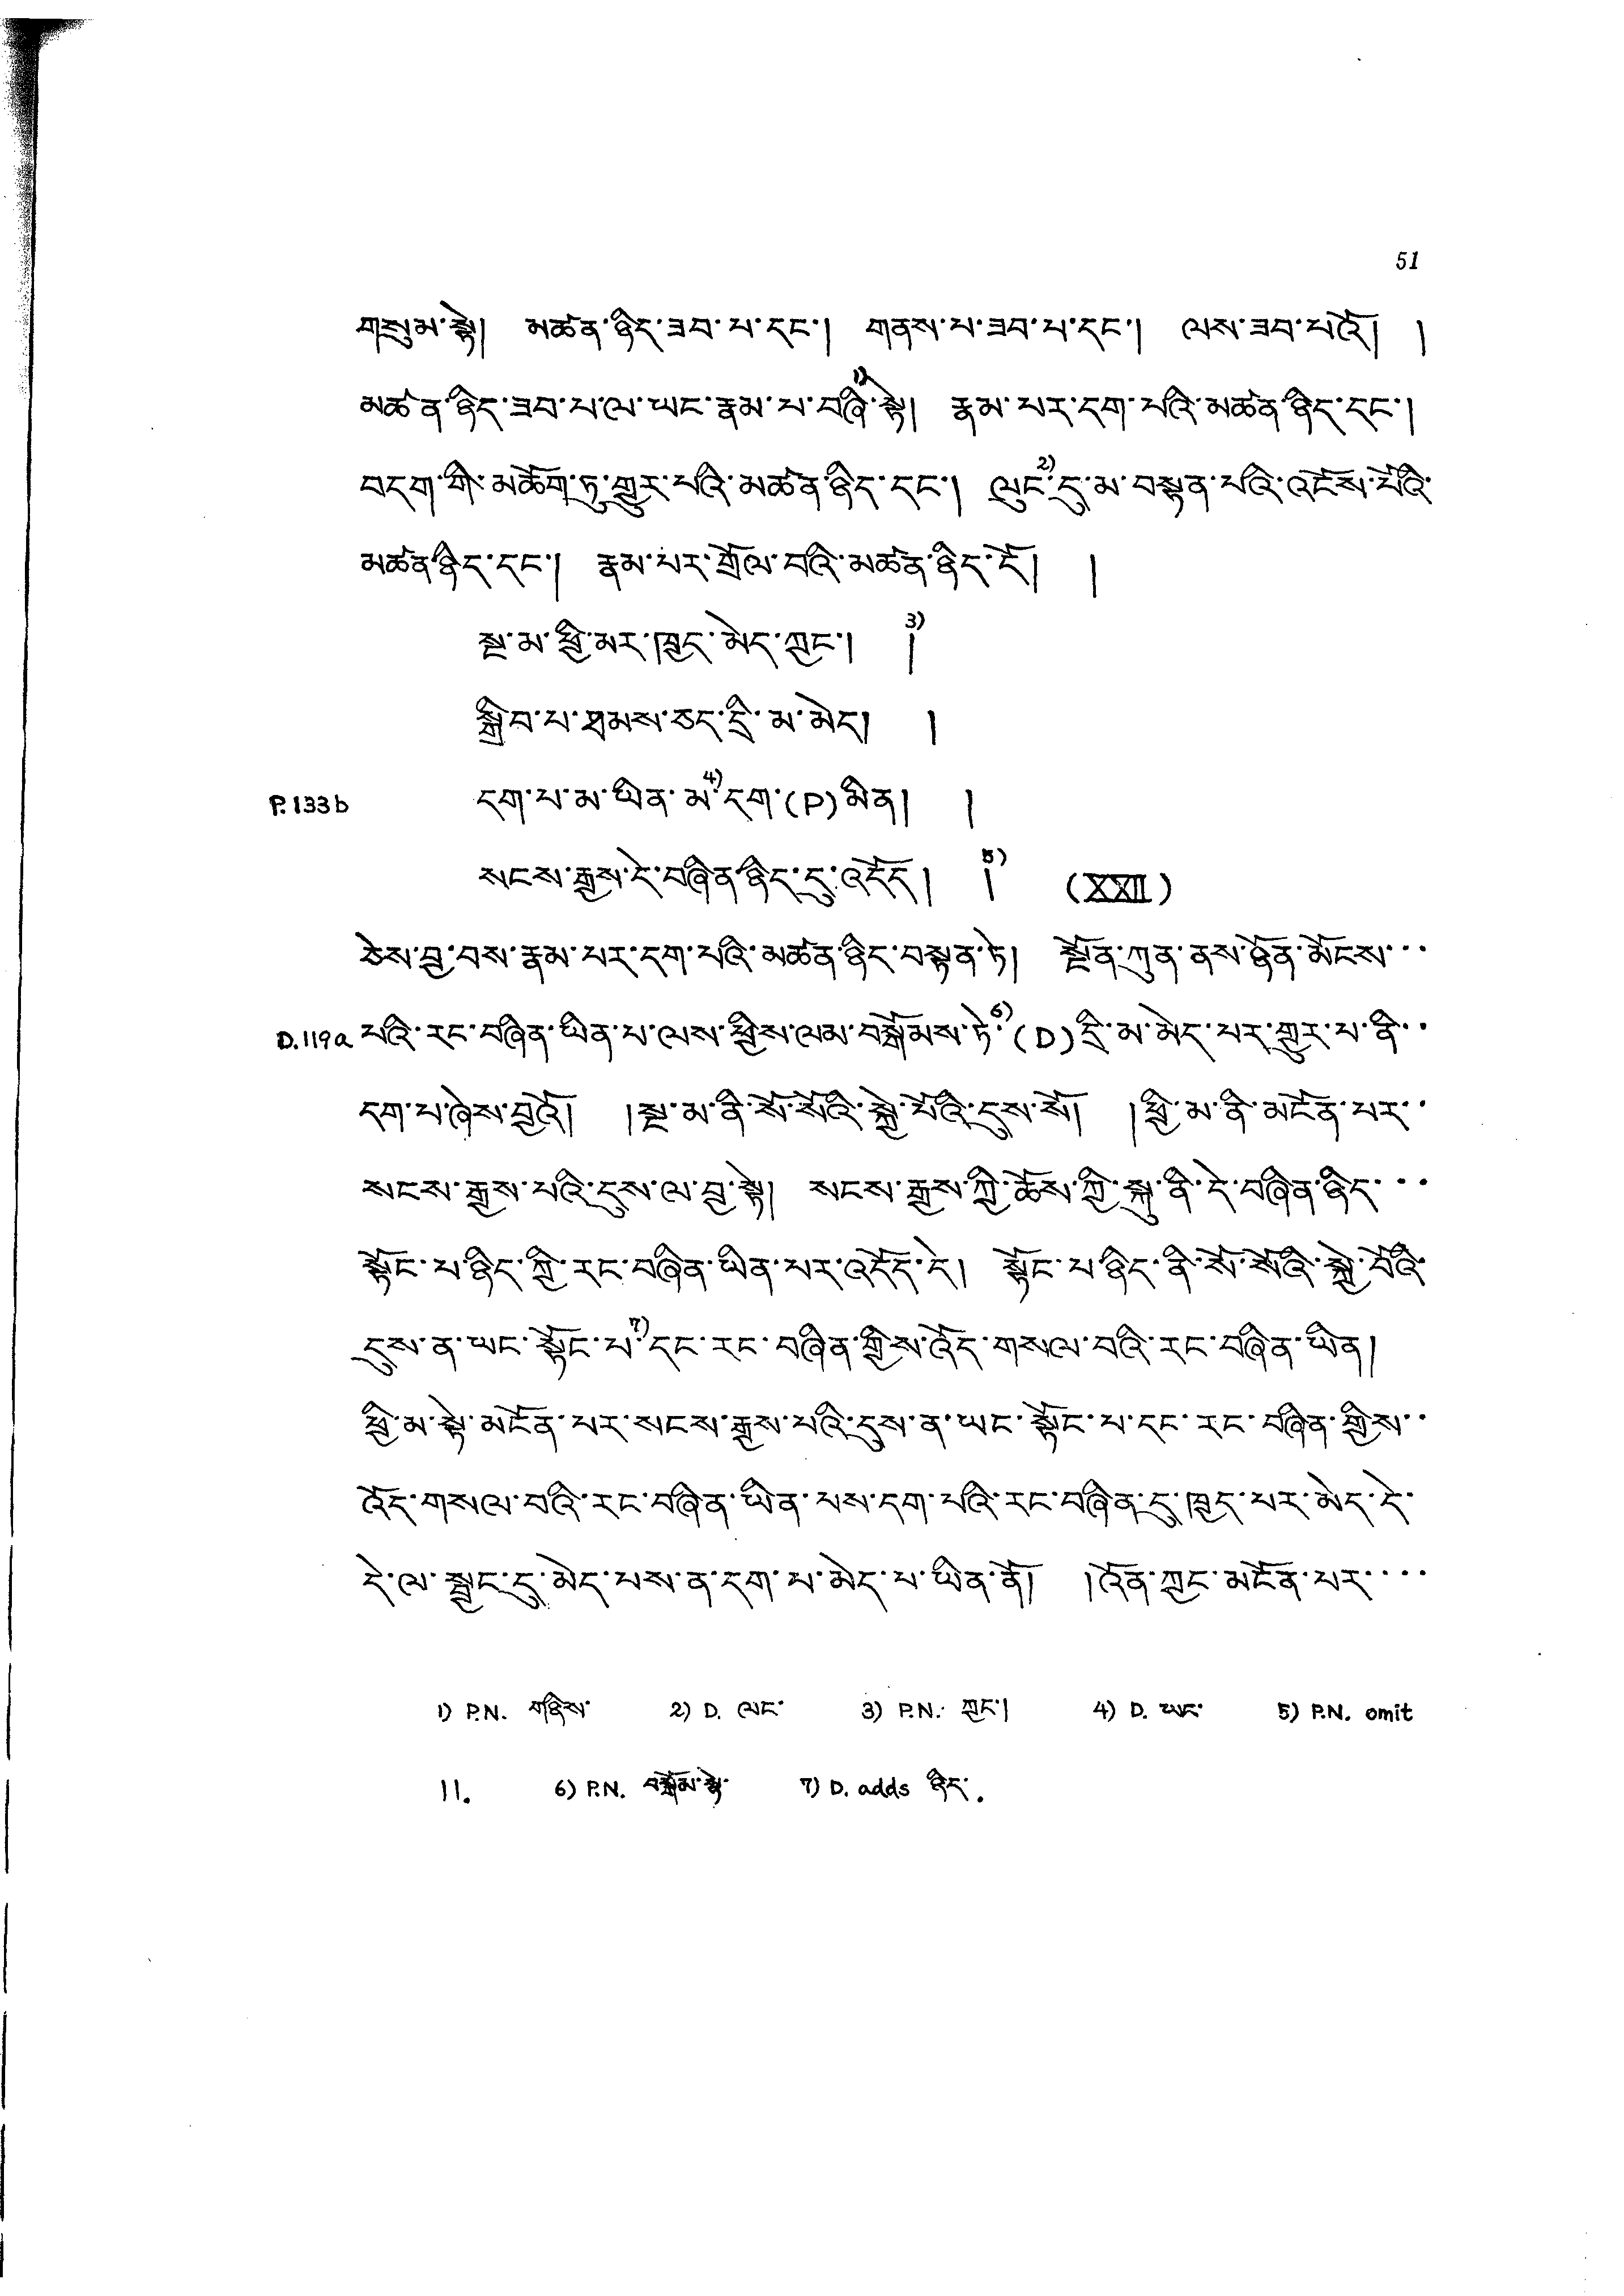 51
གསུམ་སྟེ། མཚན་ཉིད་ཟབ་པ་དང་། གནས་པ་ཟབ་པ་དང་། ལས་ཟབ་པའོ། །
མཚན་ཉིད་ཟབ་པ་ལ་ཡང་རྣམ་པ་བཞི་1)སྟེ། རྣམ་པར་དག་པའི་མཚན་ཉིད་དང་།
བདག་གི་མཆོག་ཏུ་གྱུར་པའི་མཚན་ཉིད་དང་། ལུང་2)དུ་མ་བསྟན་པའི་འངོས་པོའི་
མཚན་ཉིད་དང་། རྣམ་པར་གྲོལ་བའི་མཚན་ཉིད་དོ། །
སྔ་མ་ཕྱི་མར་ཁྱད་མེད་ཀྱང་། །3)
སྒྲིབ་པ་ཐམས་ཅད་དྲི་མ་མེད། །
P.133b དག་པ་མ་ཡིན་མ་4)དག་(P)མིན། །
སངས་རྒྱས་དེ་བཞིན་ཉིད་དུ་འདོད། །5) (XXII)
ཅེས་བྱ་བས་རྣམ་པར་དག་པའི་མཚན་ཉིད་བསྟན་ཏེ། སྔོན་ཀུན་ནས་ཉོན་མོངས་···
D.119a པའི་རང་བཞིན་ཡིན་པ་ལས་ཕྱིས་ལམ་བསྒོམས་ཏེ་6)(D)དྲི་མ་མེད་པར་གྱུར་པ་ནི་··
དག་པ་ཞེས་བྱའོ། །སྔ་མ་ནི་སོ་སོའི་སྐྱེ་པོའི་དུས་སོ། །ཕྱི་མ་ནི་མངོན་པར་··
སངས་རྒྱས་པའི་དུས་ལ་བྱ་སྟེ། སངས་རྒྱས་ཀྱི་ཆོས་ཀྱི་སྐུ་ནི་དེ་བཞིན་ཉིད་···
སྟོང་པ་ཉིད་ཀྱི་རང་བཞིན་ཡིན་པར་འདོད་དེ། སྟོང་པ་ཉིད་ནི་སོ་སོའི་སྐྱེ་བོའི་
དུས་ན་ཡང་སྟོང་པ་7)དང་རང་བཞིན་གྱིས་འོད་གསལ་བའི་རང་བཞིན་ཡིན།
ཕྱི་མ་སྟེ་མངོན་པར་སངས་རྒྱས་པའི་དུས་ན་ཡང་སྟོང་པ་དང་རང་བཞིན་གྱིས་··
འོད་གསལ་བའི་རང་བཞིན་ཡིན་པས་དག་པའི་རང་བཞིན་དུ་ཁྱད་པར་མེད་དེ་
དེ་ལ་སྦྱང་དུ་མེད་པས་ན་དག་པ་མེད་པ་ཡིན་ནོ། །འོན་ཀྱང་མངོན་པར་····
1) P.N. གཉིས་ 2) D. ལང་ 3) P.N. ཀྱང་། 4) D. ཡང་ 5) P.N. omit
།།. 6) P.N. བསྒོམ་སྟེ་ 7) D. adds ཉིད་.